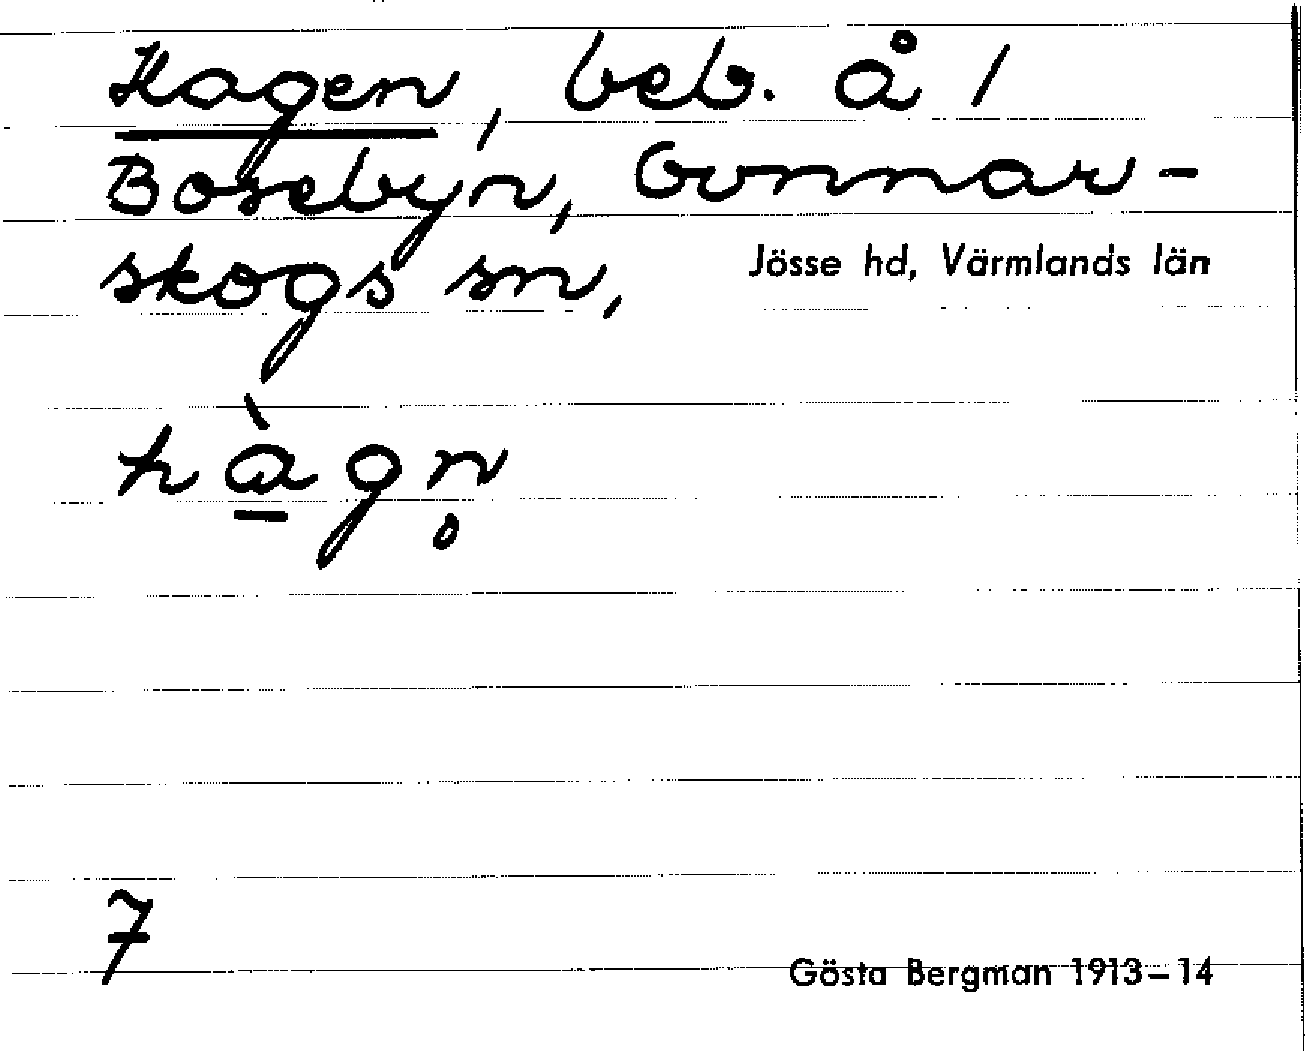 Hagen, beb. å 1
Bosebyn, Gunnar-
skogs sn, Jösse hd, Värmlands län
hàgn̥
7
Gösta Bergman 1913–14